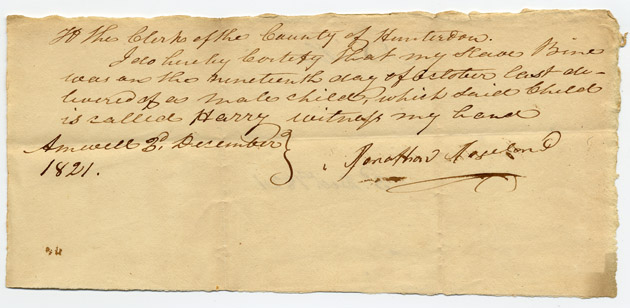 To the Clerk of the County of Hunterdon.
I do hereby Certify That my Slave Bine
was on the nineteenth day of October last de-
livered of a male child, which said Child
is called Harry witness my hand
Amwell 3d. December
1821.
Jonathan